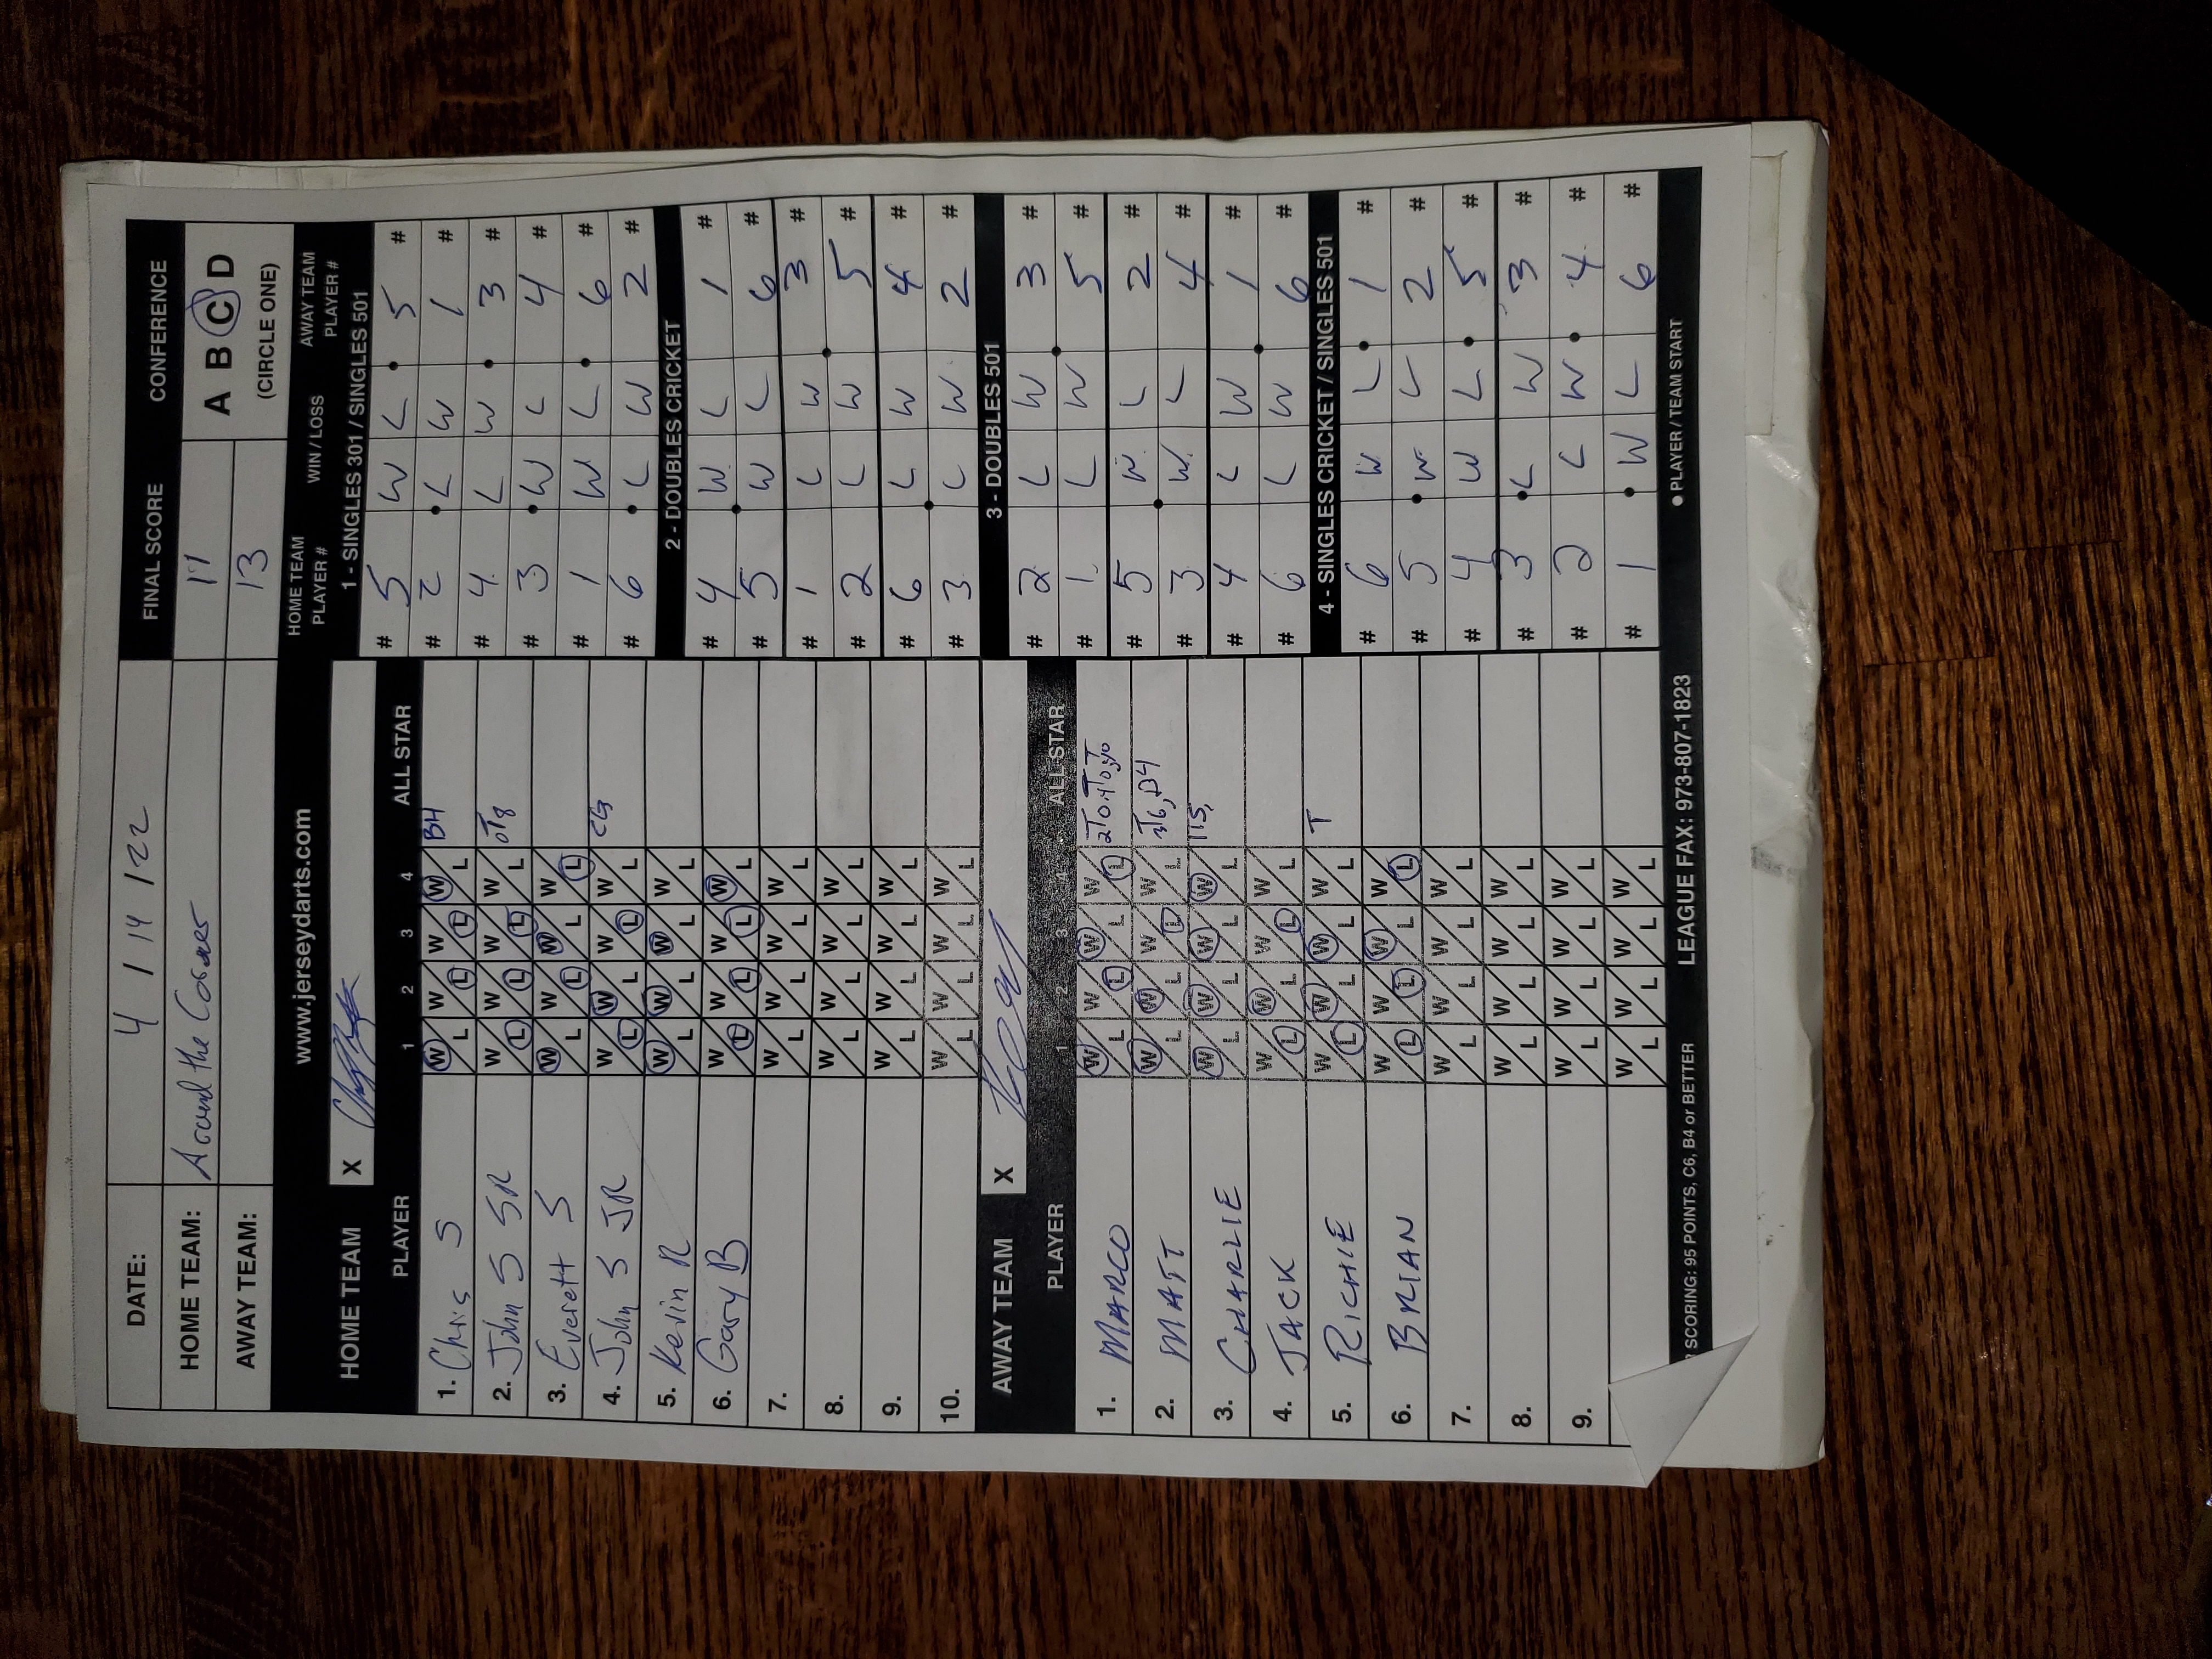 DATE: 4 / 14 / 22 FINAL SCORE CONFERENCE
HOME TEAM: Around the Corner 11 A B C D
AWAY TEAM: 13 (CIRCLE ONE)
www.jerseydarts.com
HOME TEAM X
PLAYER 1 2 3 4 ALL STAR
1. Chris S W L W L W L W L BH
2. John S SR W L W L W L W L
3. Everett S W L W L W L W L
4. John S JR W L W L W L W L
5. Kevin R W L W L W L W L
6. Gary B W L W L W L W L
7. W L W L W L W L
8. W L W L W L W L
9. W L W L W L W L
10. W L W L W L W L
AWAY TEAM X
PLAYER 1 2 3 4 ALL STAR
1. MARCO W L W L W L W L
2. MATT W L W L W L W L
3. CHARLIE W L W L W L W L 115,
4. JACK W L W L W L W L
5. RICHIE W L W L W L W L T
6. BRIAN W L W L W L W L
7. W L W L W L W L
8. W L W L W L W L
9. W L W L W L W L
W L W L W L W L
SCORING: 95 POINTS, C6, B4 or BETTER LEAGUE FAX: 973-807-1823
HOME TEAM PLAYER # WIN / LOSS AWAY TEAM PLAYER #
1 - SINGLES 301 / SINGLES 501
# 5 W L 5 #
# 2 L W 1 #
# 4 L W 3 #
# 3 W L 4 #
# 1 W L 6 #
# 6 L W 2 #
2 - DOUBLES CRICKET
# 4 W L 1 #
# 5 W L 6 #
# 1 L W 3 #
# 2 L W 5 #
# 6 L W 4 #
# 3 L W 2 #
3 - DOUBLES 501
# 2 L W 3 #
# 1 L W 5 #
# 5 W L 2 #
# 3 W L 4 #
# 4 L W 1 #
# 6 L W 6 #
4 - SINGLES CRICKET / SINGLES 501
# 6 W L 1 #
# 5 W L 2 #
# 4 W L 5 #
# 3 L W 3 #
# 2 L W 4 #
# 1 W L 6 #
● PLAYER / TEAM START